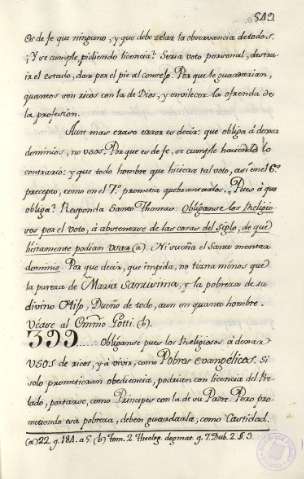 513
Es de fe que ninguno, y que debe zelar la observancia de todos.
¿Y se cumple pidiendo licencia? Seria voto personal, destruir
el estado, dar por el pie al consejo. Por que le guardarian,
quantos son ricos con la de Dios, y envilecer la ofrenda de
la profesion.
Aun mas craso error es decir: que obliga á dexar
dominios, no usos. Por que es de fe, se cumple haciendo lo
contrario: y que todo hombre que hiciera tal voto, asi en el 6.º
precepto, como en el 7.º prometia quebrantarlos. ¿Pues á que
obliga? Responda Santo Thomas: Obliganse los Religiosos
por el voto, á abstenerse de las cosas del siglo, de que
licitamente podian usar (a). Ni sueña el Santo mentar
dominio. Por que decir, que impida, no tizna menos que
la pureza de Maria Santisima, y la pobreza de su
divino Hijo, Dueño de todo, aun en quanto hombre.
Vease al Emin̄o Gotti (b).
Obliganse pues los Religiosos á dexar
usos de ricos, y á vivir, como Pobres Evangelicos. Si
solo prometieran obediencia, podrian con licencia del Prelado,
portarse, como Principes con la de su Padre. Pero prometiendo
esa pobreza, deben guardarla, como Castidad.
(a) 22. q. 184. a 5 (b) tom. 2. Theolog. dogmat. q. 7. Dub. 2. §. 3.